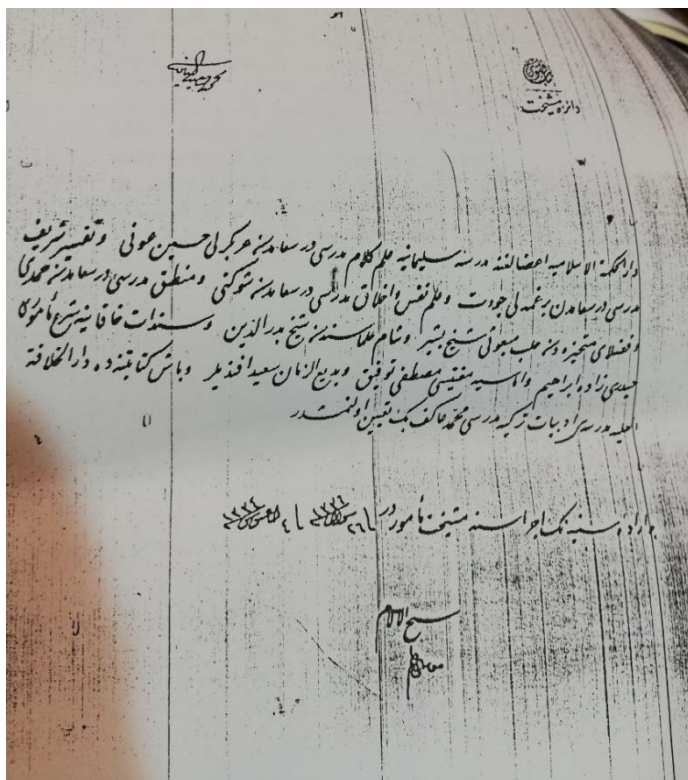 دائرهٔ مشیخت
دار الحکمة الاسلامیه اعضالغنه مدرسهٔ سلیمانیه علم کلام مدرسی درسعامدن عربکیرلی حسین عونی و تفسیر شریف
مدرسی درسعامدن برغمه‌لی جودت و علم نفس و اخلاق مدرسی درسعامدن شوکتی و منطق مدرسی درسعامدن حمدی
و فضلای متحیزه‌دن حلب مبعوثی شیخ بشیر و شام علماسندن شیخ بدرالدین و سندات خاقانیه شرع مأموری
حیدری زاده ابراهیم و اماسیه مفتیسی مصطفی توفیق و بدیع الزمان سعید افندیلر و باش کتابتنه ده دار الخلافة
العلیه مدرسه‌سی ادبیات ترکیه مدرسی محمد عاکف بك تعیین اولنمشدر
بو ارادهٔ سنیه نك اجراسنه مشیخت مأموردر
شیخ الاسلام